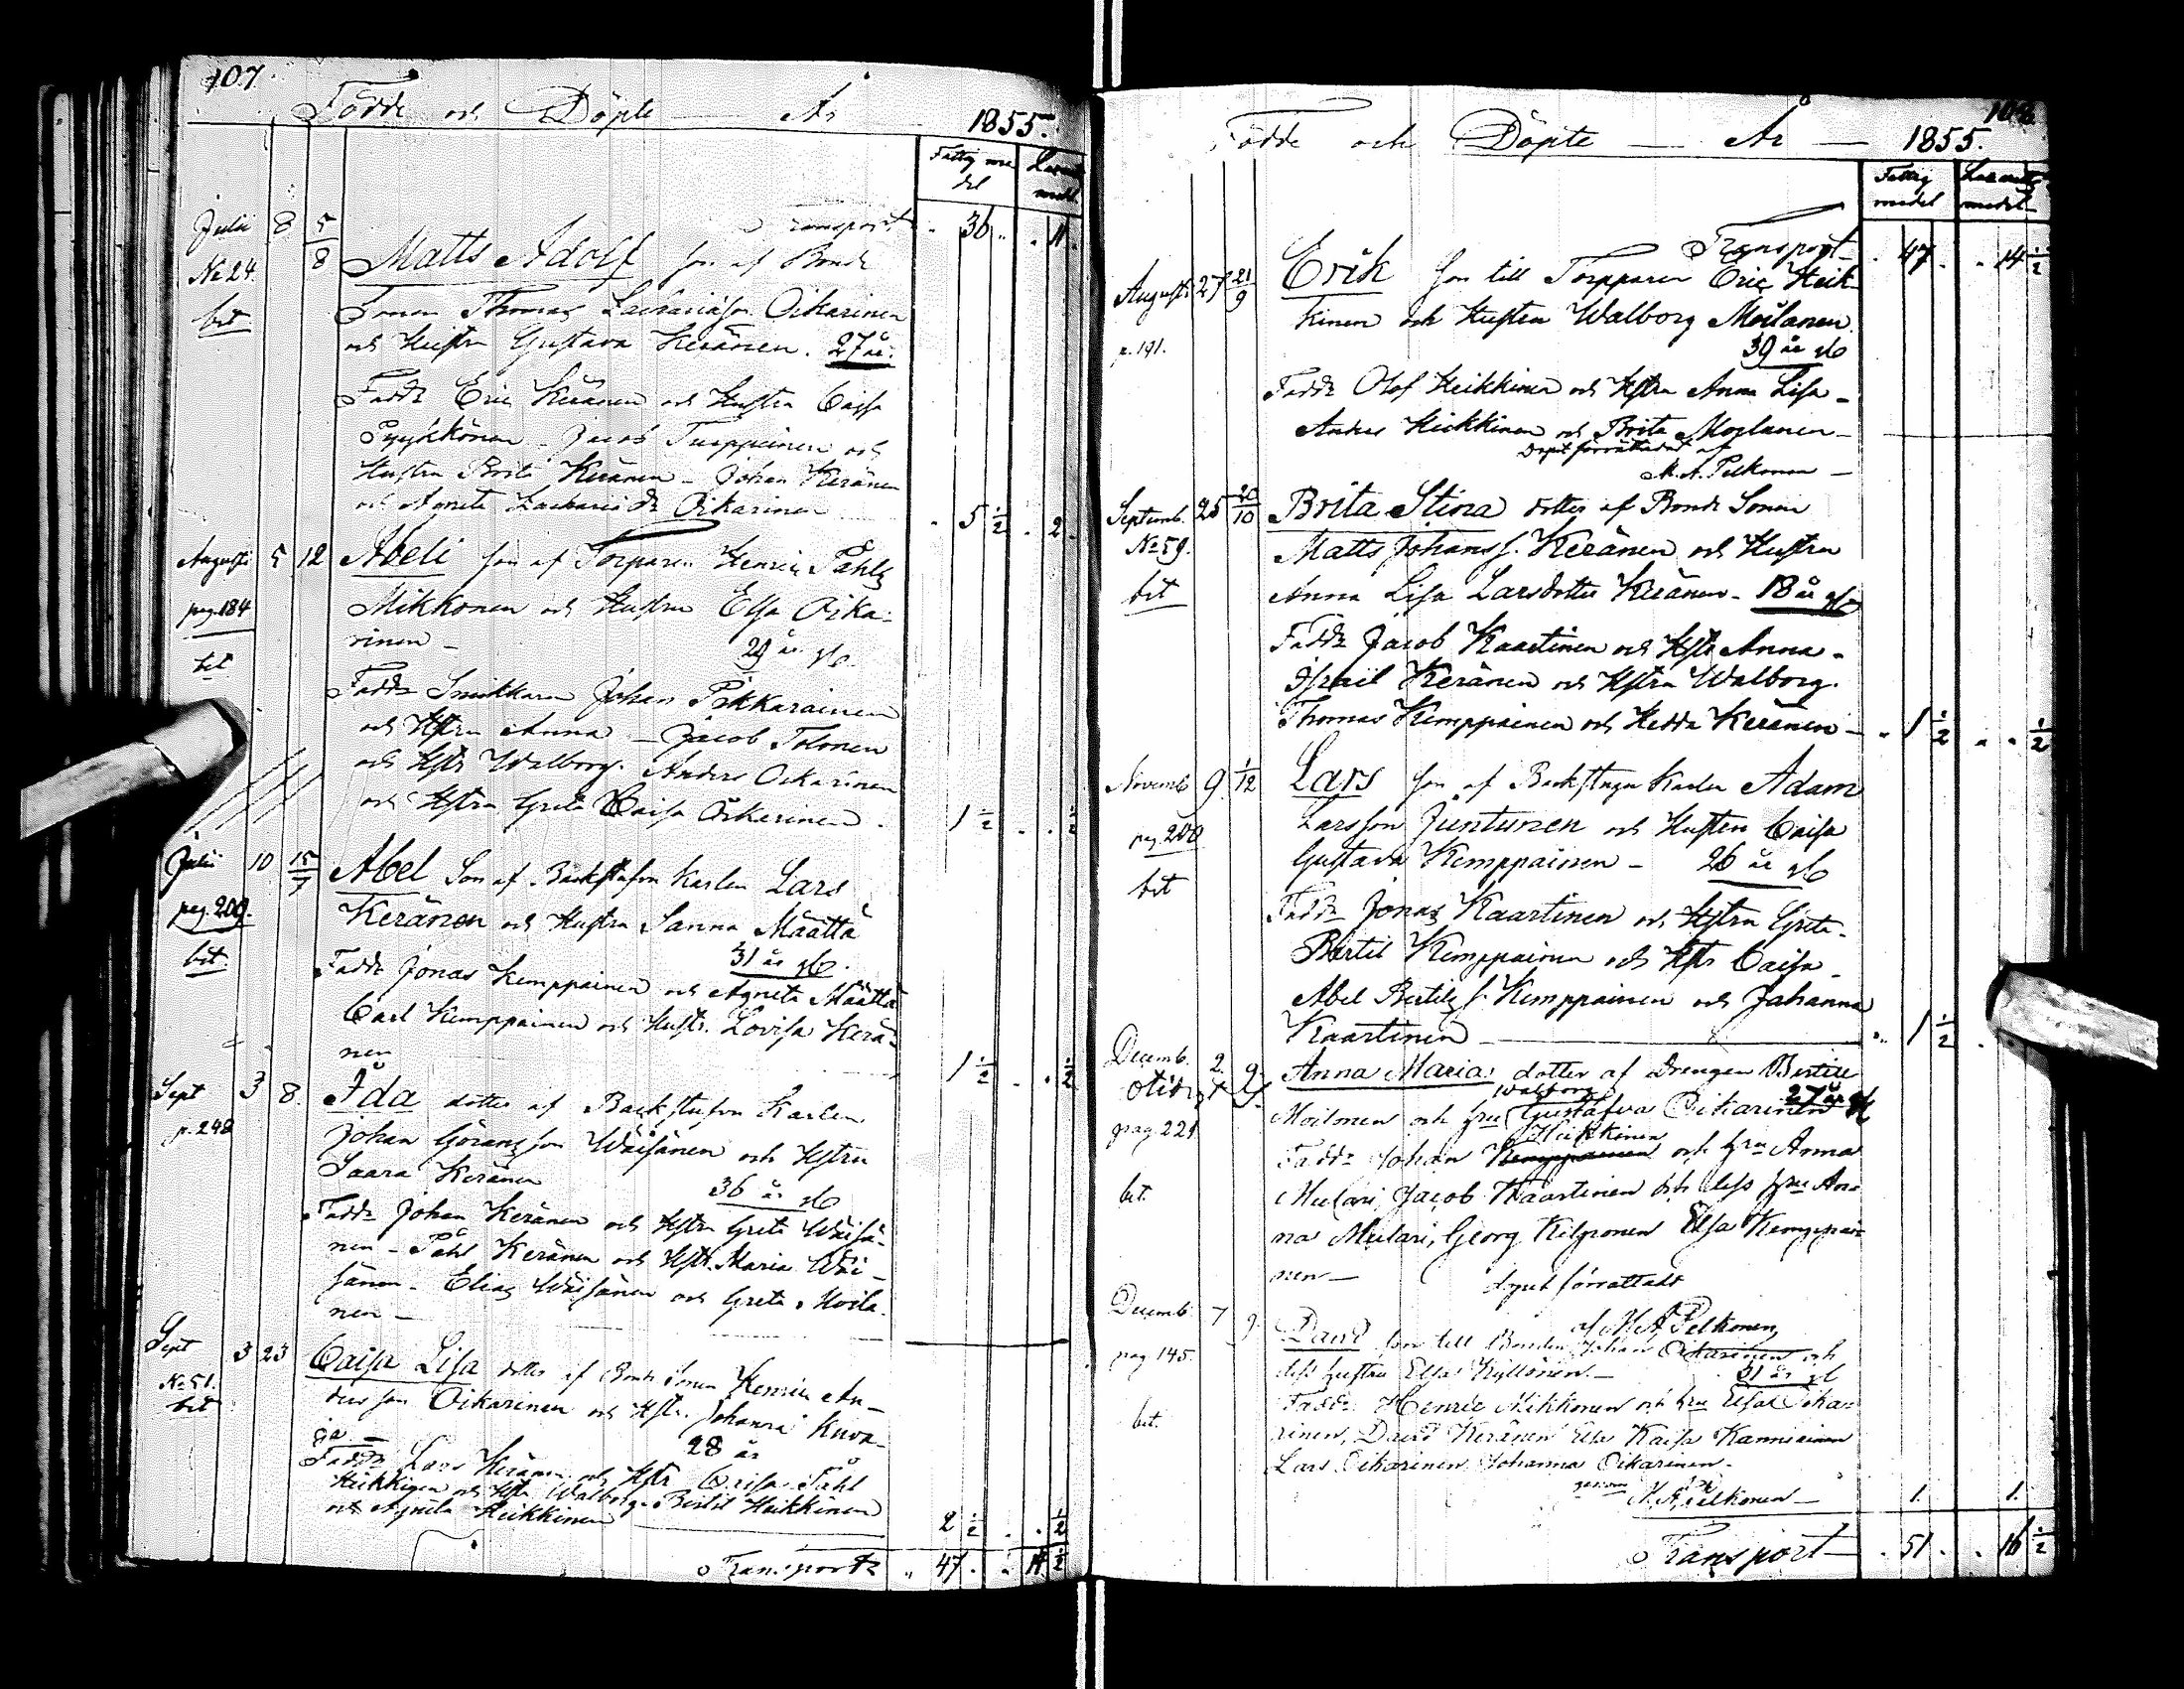 107.
Födde och Döpte — År 1855.
Fattig medel
Lazaretts medel
Transport " 36 " " 11 "
Julii 8 5/8 Matts Adolf Son af Bonde
No 24. Sonen Thomas Zachariason Oikarinen
bet och Hustru Gustava Keränen. 27 år.
Faddr Eric Keränen och Hustru Caisa
Pyykkönen – Jacob Turppeinen och
Hustru Brita Keränen – Johan Keränen
och Agneta Zacharie dr Oikarinen " 5 1/2 " 2 "
Augusti 5 12 Abeli Son af Torparen Henric Påhls
pag. 184 Mikkonen och Hustru Elsa Oika-
bet rinen – 29 år gl.
Faddr Johan Pikkarainen
och Hstru Anna – Jacob Tolonen
och Hstr Walborg. Anders Oikarinen
och Hstru Greta Caisa Oikarinen. 1 1/2 " " 1/2
Julii 10 15/7 Abel Son af Backstufvu Karlen Lars
pag. 209. Keränen och Hustru Sanna Määttä
bet. 31 år gl.
Faddr Jonas Kemppainen och Agneta Määttä
Carl Kemppainen och Hustr. Lovisa Kerä-
nen 1 1/2 " " 1/2
Sept 3 8. Ida dotter af Backstufvu Karlen
p. 248 Johan Göransson Wäisänen och Hstru
Saara Keränen 36 år gl
Faddr Johan Keränen och Hstru Greta Wäisä-
nen – Påhl Keränen och Hstr. Maria Wäi-
sänen – Elias Wäisänen och Greta Moila-
nen –
Sept 3 23 Caisa Lisa dotter af Bonde Sonen Henric An-
No 51. dersson Oikarinen och Hstr. Johanna Kuva-
bet ja – 28 år
Faddr Lars Keränen och Hstr Caisa. Påhl
Heikkinen och Hstr Walborg – Bertil Heikkinen
och Agneta Heikkinen 2 1/2 " " 1/2
Transport " 47 " " 14 1/2
108.
Födde och Döpte — År — 1855.
Fattig medel
Lazaretts medel
Transport " 47 " " 14 1/2
Augusti 27 21/9 Erik Son till Torpparen Eric Heik-
kinen och Hustru Walborg Moilanen.
p. 191. 39 år gl
Faddr Olof Heikkinen och Hstru Anna Lisa –
Anders Heikkinen och Brita Moilanen –
Dopet förrättadt af
M. A. Pelkonen –
Septemb. 25 20/10 Brita Stina dotter af Bonde Sonen
No 59. Matts Johans s. Keränen och Hustru
bet Anna Lisa Larsdotter Keränen – 18 år gl
Faddr Jacob Kaartinen och Hstr Anna –
Israil Keränen och Hstru Walborg.
Thomas Kemppainen och Hedda Keränen – " 1 1/2 " " 1/2
Novemb 9 1/12 Lars Son af Backstugu Karlen Adam
pag. 200 Larsson Juntunen och Hustru Caisa
bet Gustava Kemppainen – 26 år gl
Faddr Jonas Kaartinen och Hstru Greta –
Bertil Kemppainen och Hstr Caisa –
Abel Bertils s. Kemppainen och Johanna
Kaartinen " 1 1/2
Decemb. 2. 9. Anna Maria dotter af Drengen Bertill
Walborg 27 år gl
Moilonen och hru Gustafva Oikarinen
pag. 221 Heikkinen
Faddr Johan Kemppainen och hru Anna
bet. Mulari, Jacob Kaartinen och dess hru An-
na Mulari, Georg Kilponen Elsa Kemppai-
nen – dopet förrättadt
af M. A. Pelkonen,
Decemb. 7 9. David Son till Bonden Johan Oikarinen och
pag 145. dess hustru Elsa Kyllönen. – 31 år gl
Faddr Henric Mikkonen och hru Elsa Oika-
bet. rinen, David Keränen Elsa Kaisa Kanniainen
Lars Oikarinen Johanna Oikarinen.
genom M. A. Pelkonen – 1. 1.
Transport — " 51 " " 16 1/2